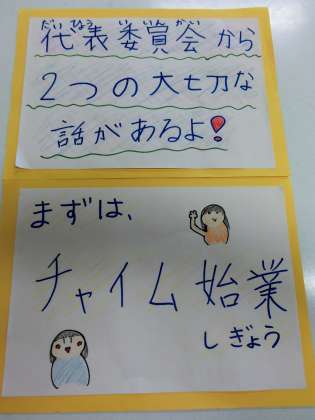 だいひょう いいんかい
代表委員会から
2つの大切な
話があるよ!
まずは、
チャイム始業
しぎょう